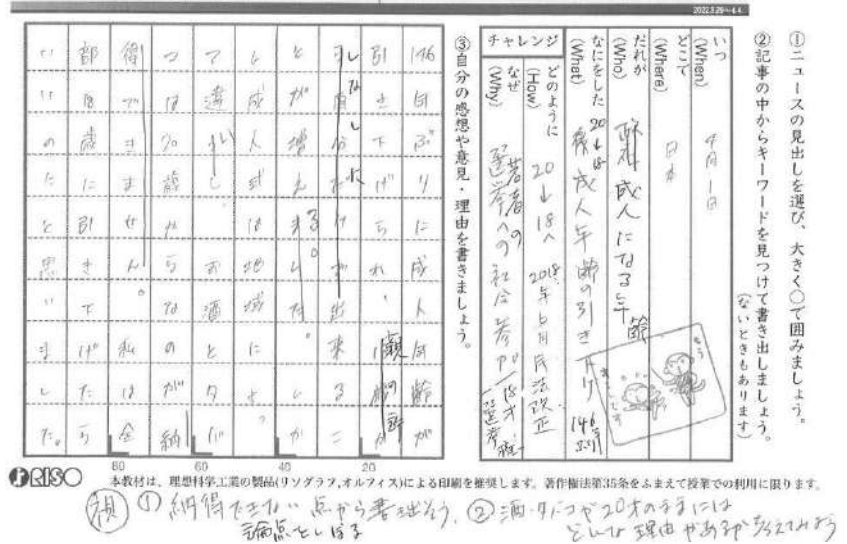 2022.3.29〜4.4
①ニュースの見出しを選び、大きく○で囲みましょう。
②記事の中からキーワードを見つけて書き出しましょう。
(ないときもあります)
いつ
(When)
4月1日
どこで
(Where)
日本
だれが
(Who)
成人になる年齢
なにをした
(What)
20→18
成人年齢の引き下げ 146年ぶり
チャレンジ
どのように
(How)
20→18へ 2018年6月民法改正
なぜ
(Why)
若者の
選挙への社会参加
18才選挙権
③自分の感想や意見・理由を書きましょう。
146年ぶりに成人年齢が
引き下げられ、親の
しなしに
出来るこ
とが増えました。しか
し成人式は地域によっ
て違いし、お酒とタバ
コは20歳からなのが納
得できません。私は全
部18歳に引き下げたら
いいのにと思いました。
20
40
60
80
RISO
本教材は、理想科学工業の製品(リソグラフ,オルフィス)による印刷を推奨します。著作権法第35条をふまえて授業での利用に限ります。
視 ① 納得できない点から書き出そう。 ② 酒・タバコが20才のままには
論点をしぼる
どんな理由があるか考えてみよう